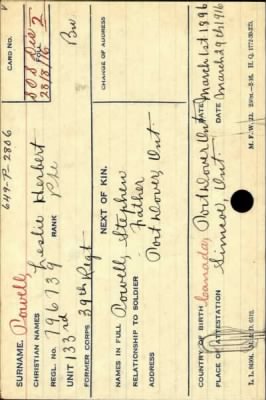 649-P-2806
SURNAME. Powell
CARD NO.
CHRISTIAN NAMES Leslie Herbert
S.O.S. Dis 2
FOL.
28/8/16
REGL. NO. 796739 RANK Pte
UNIT 133rd
FORMER CORPS 39th Regt
NEXT OF KIN.
CHANGE OF ADDRESS
NAMES IN FULL Powell, Stephen
RELATIONSHIP TO SOLDIER Father
ADDRESS Port Dover, Ont
COUNTRY OF BIRTH Canada, Port Dover Ont DATE March 1st 1896
PLACE OF ATTESTATION Simcoe, Ont. DATE March 29th/1916